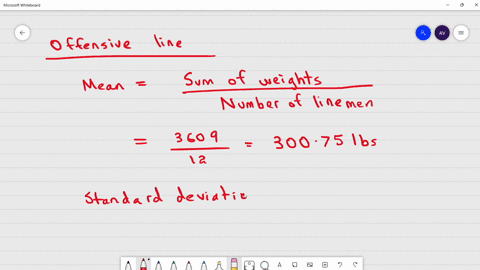 Microsoft Whiteboard
AV
Offensive line
Mean = Sum of weights
Number of linemen
= 3609
12
= 300.75 lbs
Standard deviatio